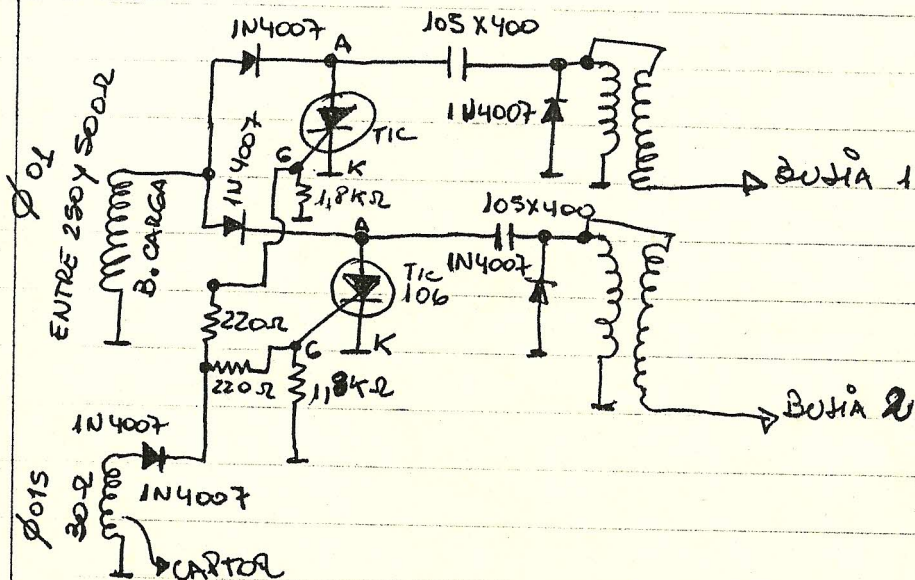 1N4007
A
105X400
1N4007
TIC
G
K
1,8KΩ
BUJIA 1
Ø01
ENTRE 250 y 500Ω
B. CARGA
1N4007
A
105X400
1N4007
TIC
106
220Ω
G
K
220Ω
1,8KΩ
BUJIA 2
1N4007
1N4007
Ø015
30Ω
CAPTOR